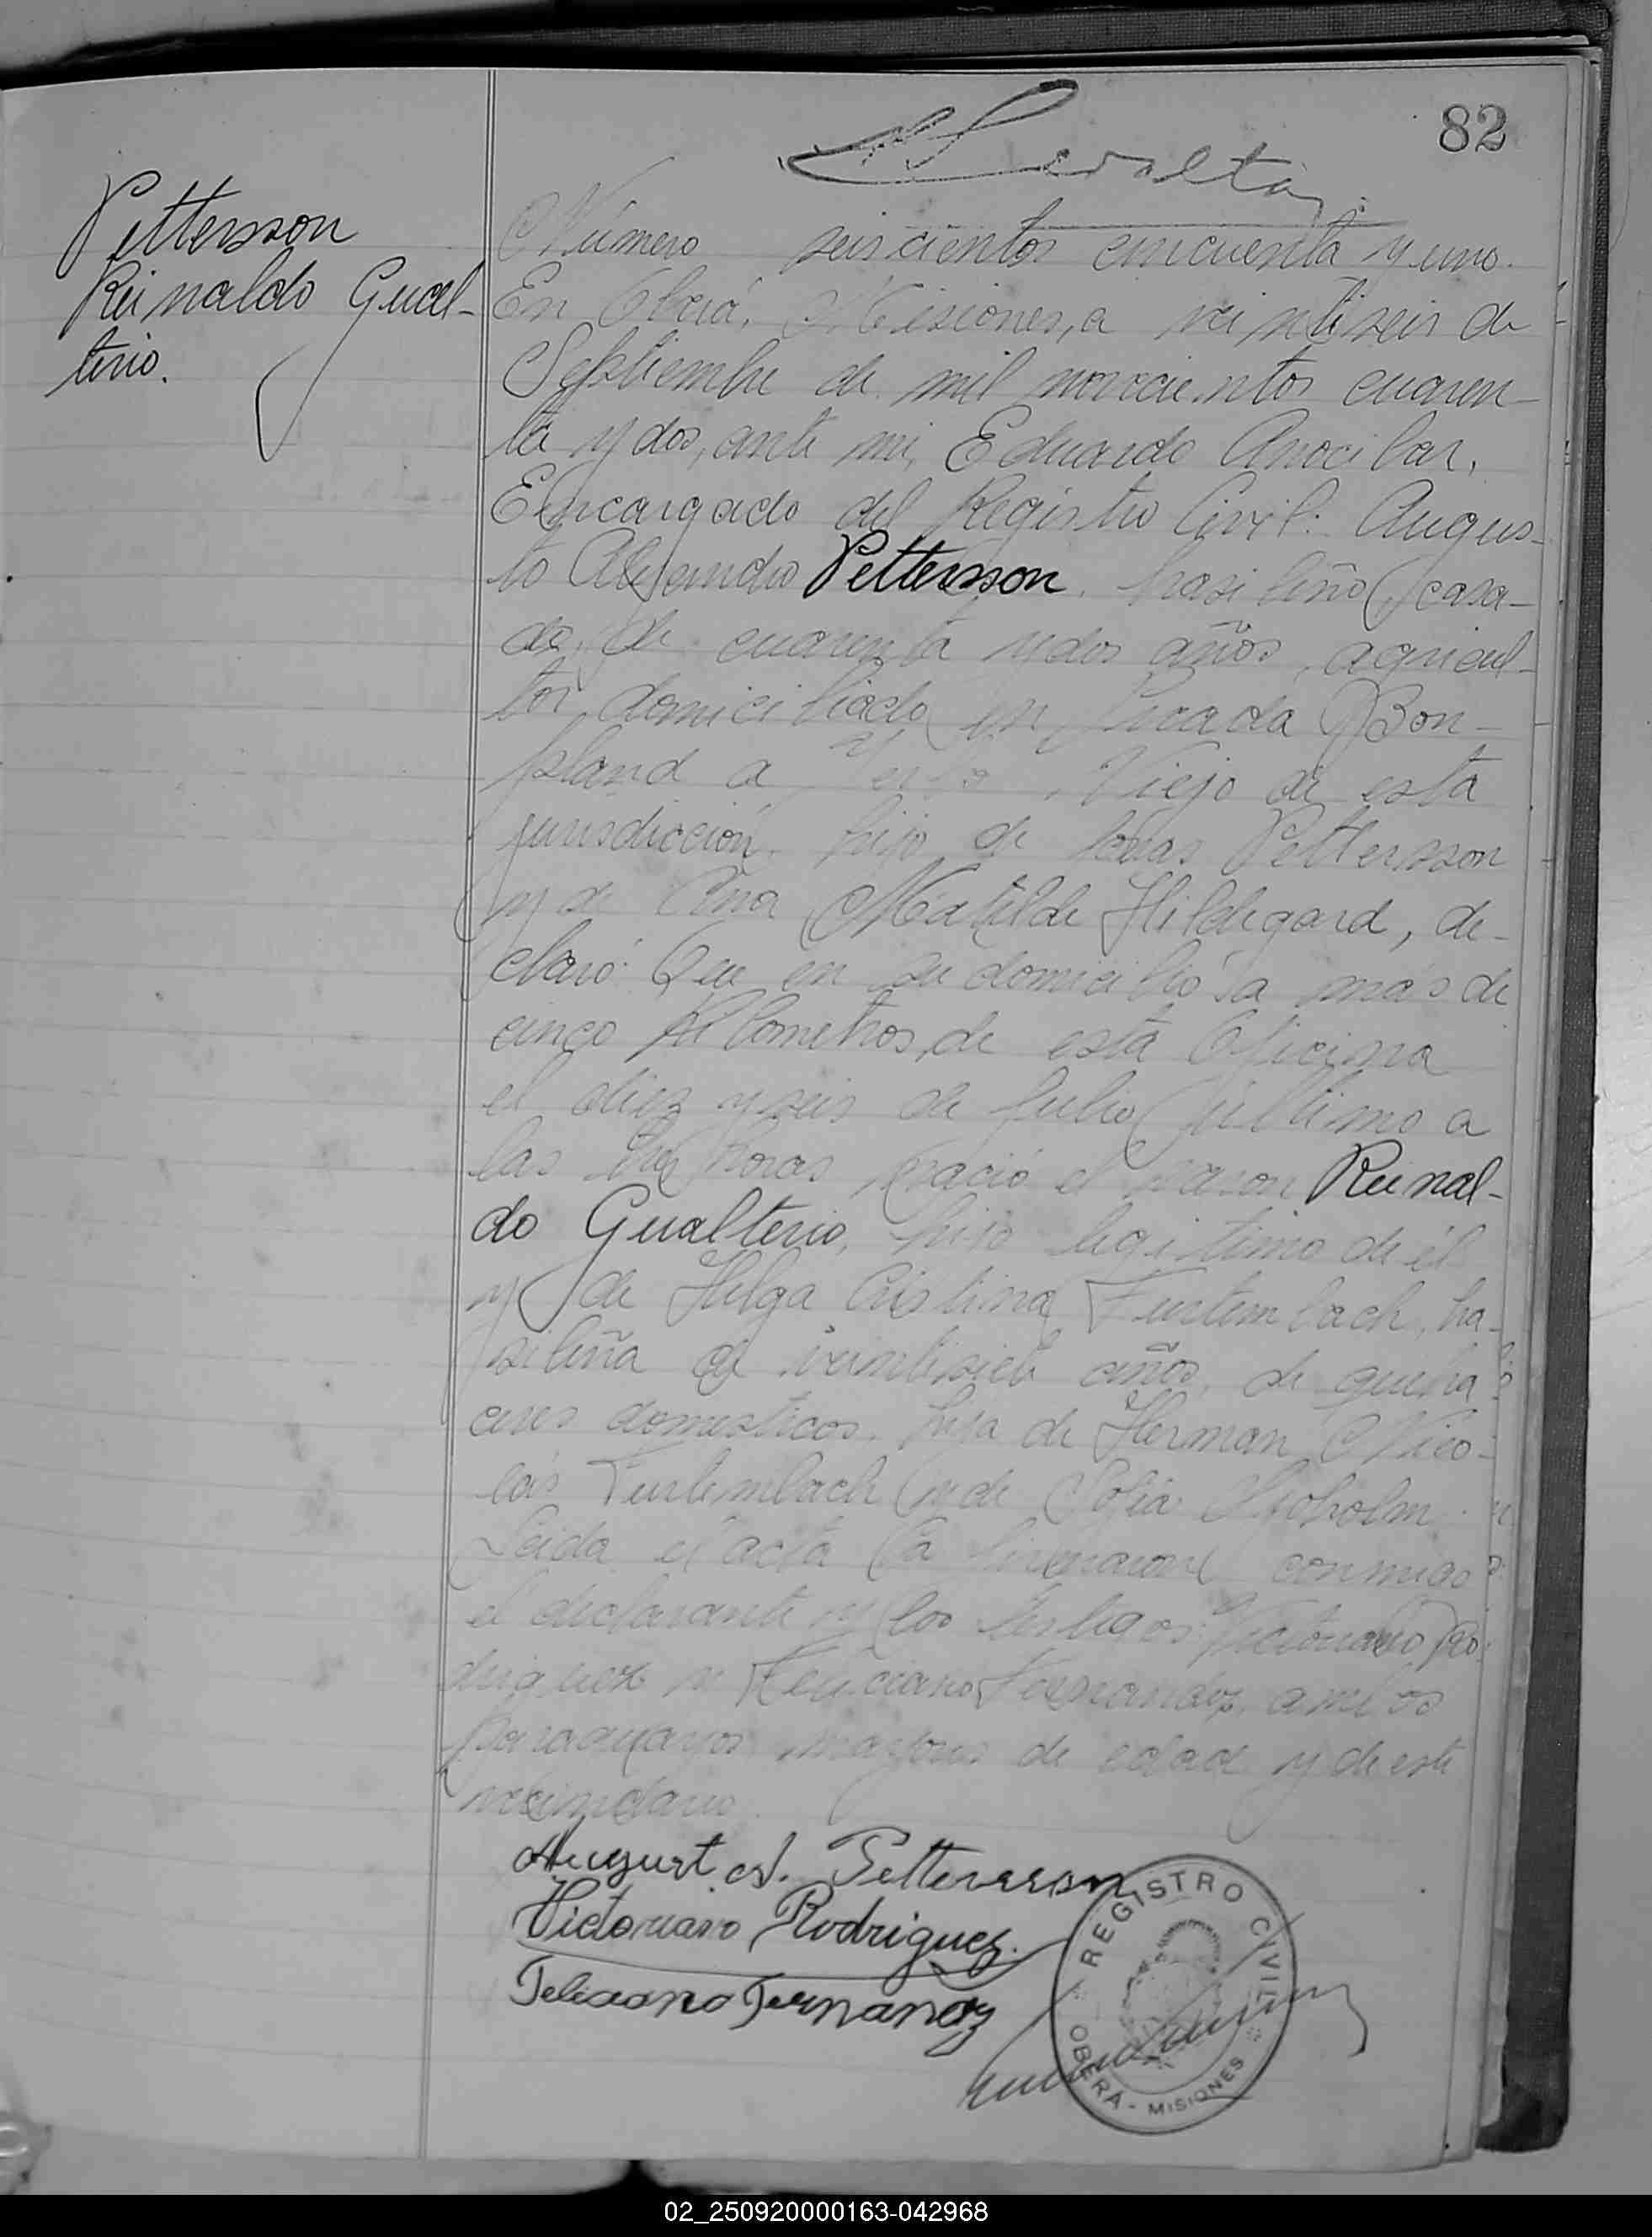 82
Peralta
Pettersson
Reinaldo Gual-
terio.
Número seiscientos cincuenta y uno.
En Oberá, Misiones, a veintiseis de
Septiembre de mil novecientos cuaren-
ta y dos, ante mi, Eduardo Anocibar,
Encargado del Registro Civil: Augus-
to Alejandro Pettersson, brasileño, casa-
do, de cuarenta y dos años, agricul-
tor, domiciliado en Picada Bon-
pland a Yerbal Viejo de esta
jurisdicción, hijo de Pettersson
y de Ana Matilde Hildegard, de-
claró: Que en su domicilio a más de
cinco kilometros de esta Oficina
el diez y seis de Julio último a
las tres horas, nació el varon Reinal-
do Gualterio, hijo legítimo de él
y de Helga Cristina Furtembach, bra-
sileña de veintisiete años, de queha-
ceres domesticos, hija de Herman Nico-
lás Furtembach y de Sofia Sjoholm.
Leida el acta la firmaron conmigo
el declarante y los testigos: Victoriano Ro-
driguez y Feliciano Fernandez, ambos
paraguayos mayores de edad y de este
vecindario.
August A. Pettersson
Victoriano Rodriguez.
Feliciano Fernandez
REGISTRO CIVIL
OBERA - MISIONES
02_250920000163-042968